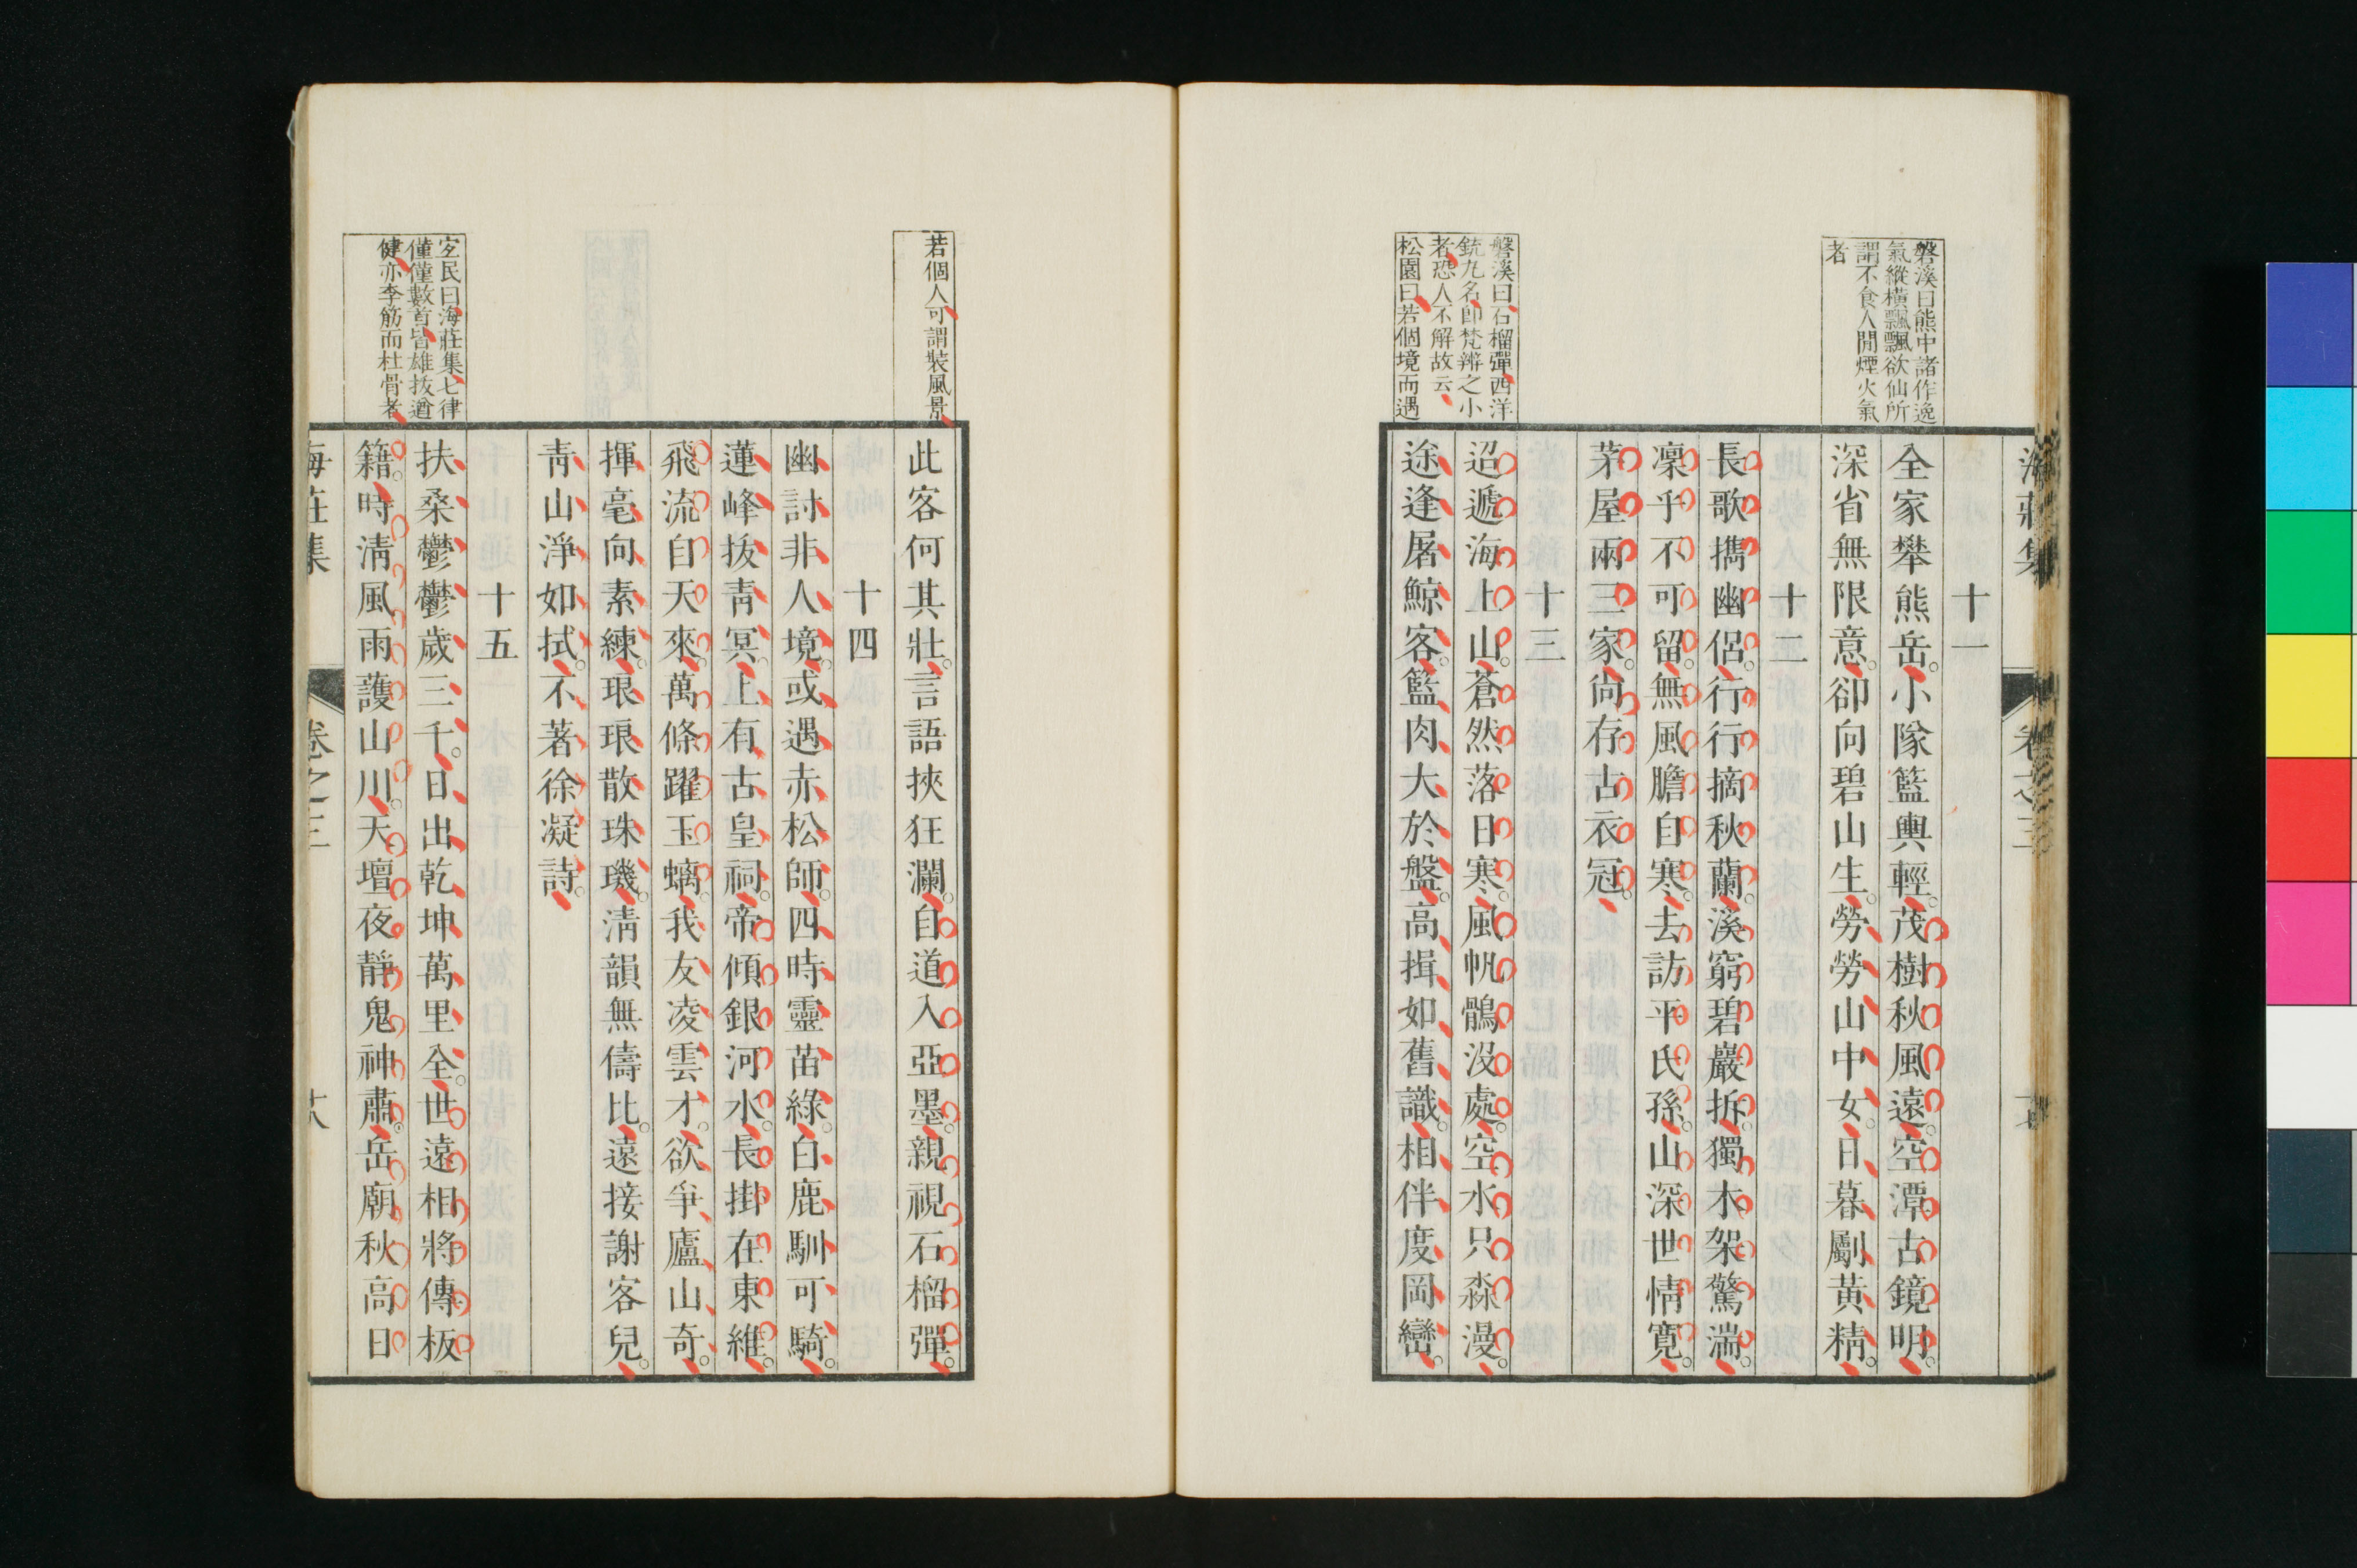 海莊集 卷之三
十一
全家攀熊岳。小隊籃輿輕。茂樹秋風遠。空潭古鏡明。
深省無限意。卻向碧山生。勞勞山中女。日暮劚黃精。
十二
長歌攜幽侶。行行摘秋蘭。溪窮碧巖拆。獨木架驚湍。
凛乎不可留。無風膽自寒。去訪平氏孫。山深世情寬。
茅屋兩三家。尙存古衣冠。
十三
迢遞海上山。蒼然落日寒。風帆鶻沒處。空水只森漫。
途逢屠鯨客。籃肉大於盤。高揖如舊識。相伴度岡巒。
磐溪曰熊中諸作逸
氣縱橫飄飄欲仙所
謂不食人間煙火氣
者
磐溪曰石榴彈西洋
銃丸名卽梵辨之小
者恐人不解故云
松園曰若個境而遇
此客何其壯。言語挾狂瀾。自道入亞墨。親視石榴彈。
十四
幽討非人境。或遇赤松師。四時靈苗綠。白鹿馴可騎。
蓮峰拔靑冥。上有古皇祠。帝傾銀河水。長掛在東維。
飛流自天來。萬條躍玉螭。我友凌雲才。欲爭廬山奇。
揮毫向素練。琅琅散珠璣。淸韻無儔比。遠接謝客兒。
靑山淨如拭。不著徐凝詩。
十五
扶桑鬱鬱歲三千。日出乾坤萬里全。世遠相將傳板
籍。時淸風雨護山川。天壇夜靜鬼神肅。岳廟秋高日
若個人可謂裝風景
宓民曰海莊集七律
僅僅數首皆雄拔遒
健亦李筋而杜骨者
海莊集 卷之三 十八